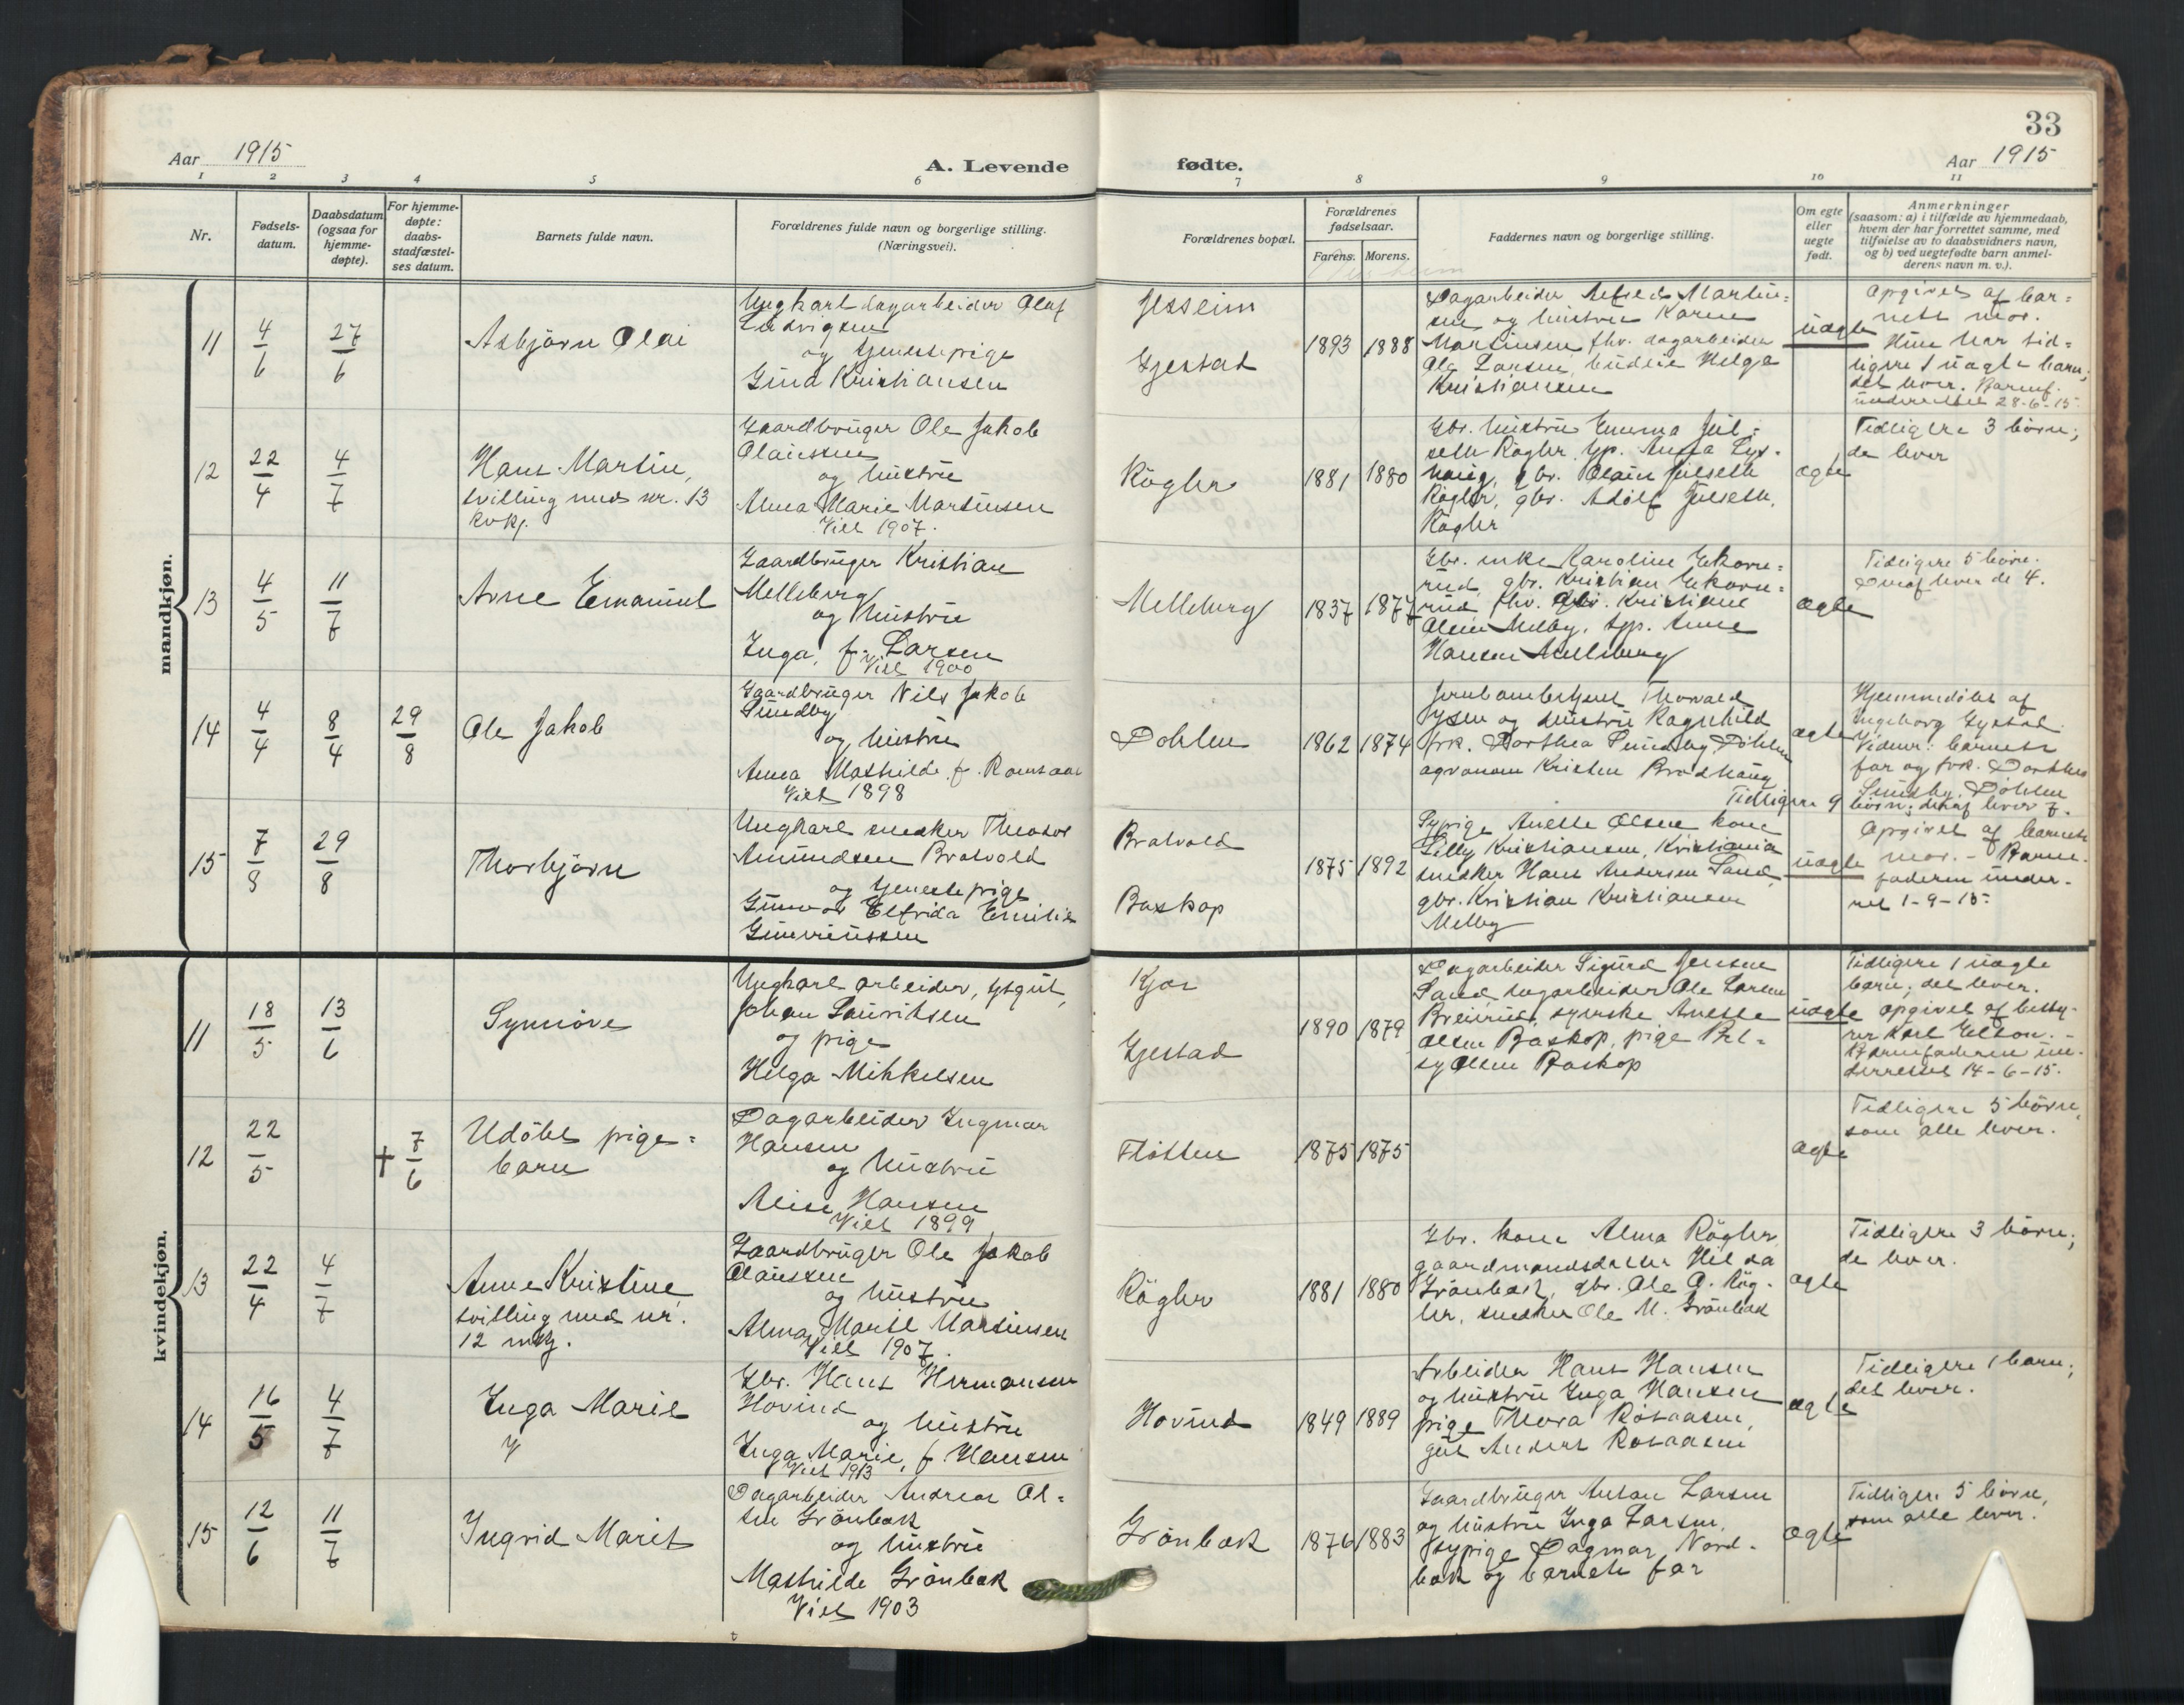 33
Aar 1915
A. Levende
fødte.
Aar 1915
1 2 3 4 5 6 7 8 9 10 11
Nr.
Fødsels-
datum.
Daabsdatum
(ogsaa for
hjemme-
døpte).
For hjemme-
døpte:
daabs-
stadfæstel-
ses datum.
Barnets fulde navn.
Forældrenes fulde navn og borgerlige stilling.
(Næringsvei).
Forældrenes bopæl.
Forældrenes
fødselsaar.
Farens. Morens.
Faddernes navn og borgerlige stilling.
Om egte
eller
uegte
født.
Anmerkninger
(saasom: a) i tilfælde av hjemmedaab,
hvem der har forrettet samme, med
tilføielse av to daabsvidners navn,
og b) ved uegtefødte barn anmel-
derens navn m. v.).
mandkjøn.
11
4/6
27/6
Asbjørn Olai
Ungkarl dagarbeider Olaf
Ludvigsen
og tjenestepige
Gina Kristiansen
Jesseim
Gjestad
1893 1888
Dagarbeider Alfred Martin=
sen og hustru Karen
Martinsen fhv. dagarbeider
Ole Larsen, budeie Helga
Kristiansen
uægte
Opgivet af bar=
nets mor.
Hun har tid=
ligere 1 uægte barn;
det lever. Barnef.
underrettet 28-6-15.
12
22/4
4/7
Hans Martin,
tvilling med nr. 13
kvkj.
Gaardbruger Ole Jakob
Olaussen
og hustru
Alma Marie Martinsen
Viet 1907.
Røgler
1881 1880
Gbr. hustru Emma Jul=
seth Røgler, tjp. Anna Lys-
haug, gbr. Olaus Julseth
Røgler, gbr. Adolf Julseth,
Røgler
ægte
Tidligere 3 børn;
de lever
13
4/5
11/7
Arne Emanuel
Gaardbruger Kristian
Melleberg
og hustru
Inga, f. Larsen
Viet 1900
Melleberg
1837 1877
Gbr. enke Karoline Ekorn=
rud, gbr. Kristian Ekorn=
rud, fhv. gbr. Kristiane
Olsen Melby, tjp. Anne
Hansen Melleberg
ægte
Tidligere 5 børn.
Deraf lever de 4.
14
4/4
8/4
29/8
Ole Jakob
Gaardbruger Nils Jakob
Sundby
og hustru
Anna Mathilde, f. Ramstad
Viet 1898
Døhlen
1862 1874
Jernbanebetjent Thorvald
Tysen og hustru Ragnhild
frk. Dorthea Sundby, Døhlen
agronom Kristen Brodshaug
ægte
Hjemmedøbt af
Ingeborg Gystad.
Vidner: barnets
far og frk. Dorthea
Sundby, Døhlen
Tidligere 9 børn; deraf lever 7.
15
7/8
29/8
Thorbjørn
Ungkarl snedker Theodor
Amundsen Bratvold
og tjenestepige
Gunvor Elfrida Emilie
Bratvold
Baskop
1875 1892
Sypige Anette Olsen kone
Lilly Kristiansen, Kristiania
snedker Hans Andersen Sand,
gbr. Kristian Kristiansen
Melby
uægte
Opgivet af barnets
mor. - Barne-
faderen under-
ret 1-9-15.
kvindekjøn.
11
18/5
13/6
Synnøve
Ungkarl arbeider,
Johan Lauritsen
og pige
Helga Mikkelsen
Kjos
Gjestad
1890 1879
Dagarbeider Sigurd Jensen
Sand, dagarbeider Ole Larsen
Breirud, syerske Anette
Olsen Baskop, pige Bet=
sy Olsen Baskop
uægte
Tidligere 1 uægte
barn; det lever.
Opgivet af besty-
rer Karl Elton. -
Barnefaderen un-
derrettet 14-6-15.
12
22/5
† 7/6
Udøbt pige=
barn
Dagarbeider Ingmar
Hansen
og hustru
Alise Hansen
Viet 1899
Fløtten
1875 1875
ægte
Tidligere 5 børn,
som alle lever.
13
22/4
4/7
Anne Kristine,
tvilling med nr.
12 mkj.
Gaardbruger Ole Jakob
Olaussen
og hustru
Alma Marie Martinsen
Viet 1907.
Røgler
1881 1880
Gbr. kone Alma Røgler,
gaardmandsdatter Hilda
Grønbæk, gbr. Ole A. Røg-
ler, snedker Ole M. Grønbæk
ægte
Tidligere 3 børn;
de lever.
14
16/5
4/7
Inga Marie
Gbr. Hans Hermansen
Hovind
og hustru
Inga Marie, f. Hansen
Viet 1913
Hovind
1849 1889
Arbeider Hans Hansen
og hustru Inga Hansen
pige Thora Rosaasen,
gut Anders Rosaasen
ægte
Tidligere 1 barn;
det lever.
15
12/6
11/7
Ingrid Marit
Dagarbeider Andreas Ol=
sen Grønbæk
og hustru
Mathilde Grønbæk
Viet 1903
Grønbæk
1876 1883
Gaardbruger Anton Larsen
og hustru Inga Larsen,
sypige Dagmar Nord-
bæk og barnets far
ægte
Tidligere 5 børn,
som alle lever.